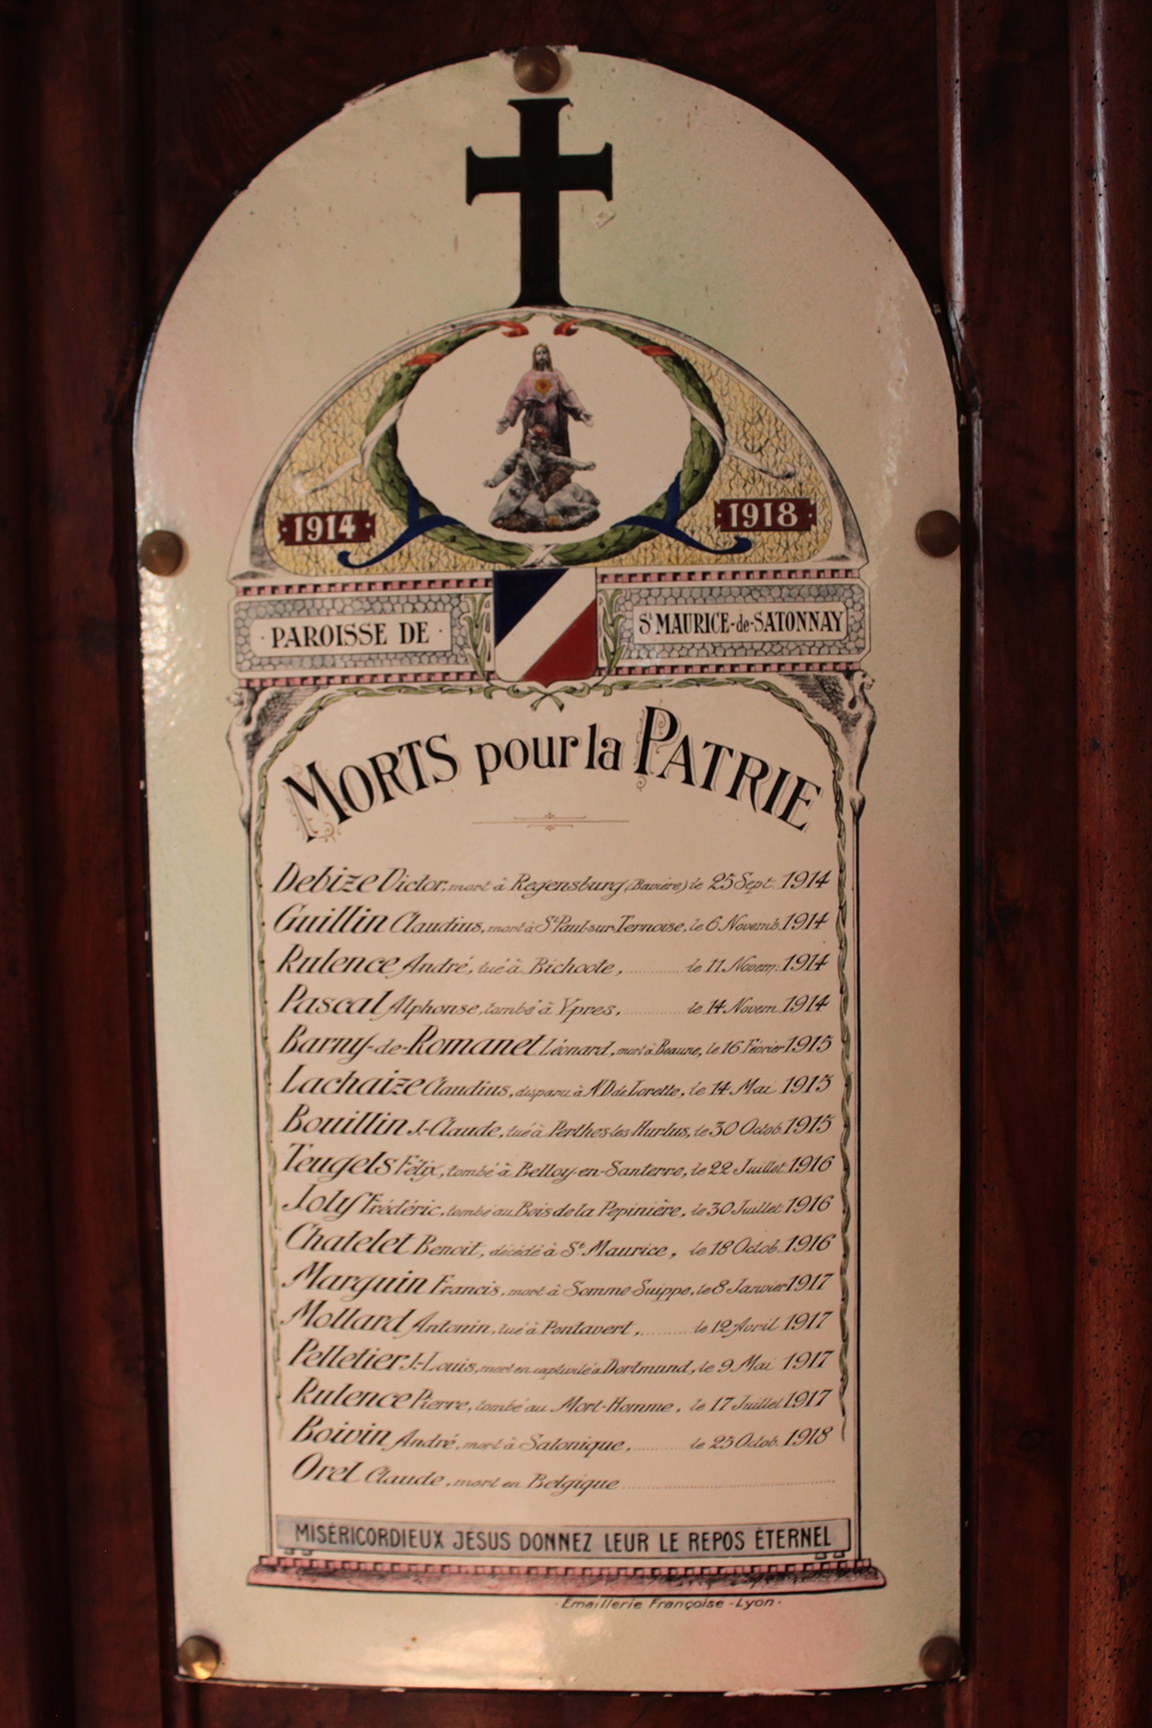 1914
1918
· PAROISSE DE ·
St MAURICE-de-SATONNAY
MORTS pour la PATRIE
Debize Victor, mort à Regensburg (Bavière) le 25 Sept. 1914
Guillin Claudius, mort à St Paul-sur-Ternoise, le 6 Novemb. 1914
Rulence André, tué à Bichoote, ......... le 11 Novem. 1914
Pascal Alphonse, tombé à Ypres, ......... le 14 Novem. 1914
Barny-de-Romanet Léonard, mort à Beaune, le 16 Février 1915
Lachaize Claudius, disparu à N.D de Lorette, le 14 Mai 1915
Bouillin J.-Claude, tué à Perthes-les-Hurlus, le 30 Octob. 1915
Teugels Félix, tombé à Belloy-en-Santerre, le 22 Juillet 1916
Joly Frédéric, tombé au Bois de la Pepinière, le 30 Juillet 1916
Chatelet Benoit, décédé à St Maurice, le 18 Octob. 1916
Marguin Francis, mort à Somme-Suippe, le 8 Janvier 1917
Mollard Antonin, tué à Pontavert, ......... le 12 Avril 1917
Pelletier J.-Louis, mort en captivité à Dortmund, le 9 Mai 1917
Rulence Pierre, tombé au Mort-Homme, le 17 Juillet 1917
Boivin André, mort à Salonique, ......... le 25 Octob. 1918
Orel Claude, mort en Belgique .........
MISÉRICORDIEUX JÉSUS DONNEZ LEUR LE REPOS ÉTERNEL
· Emaillerie Françoise - Lyon ·